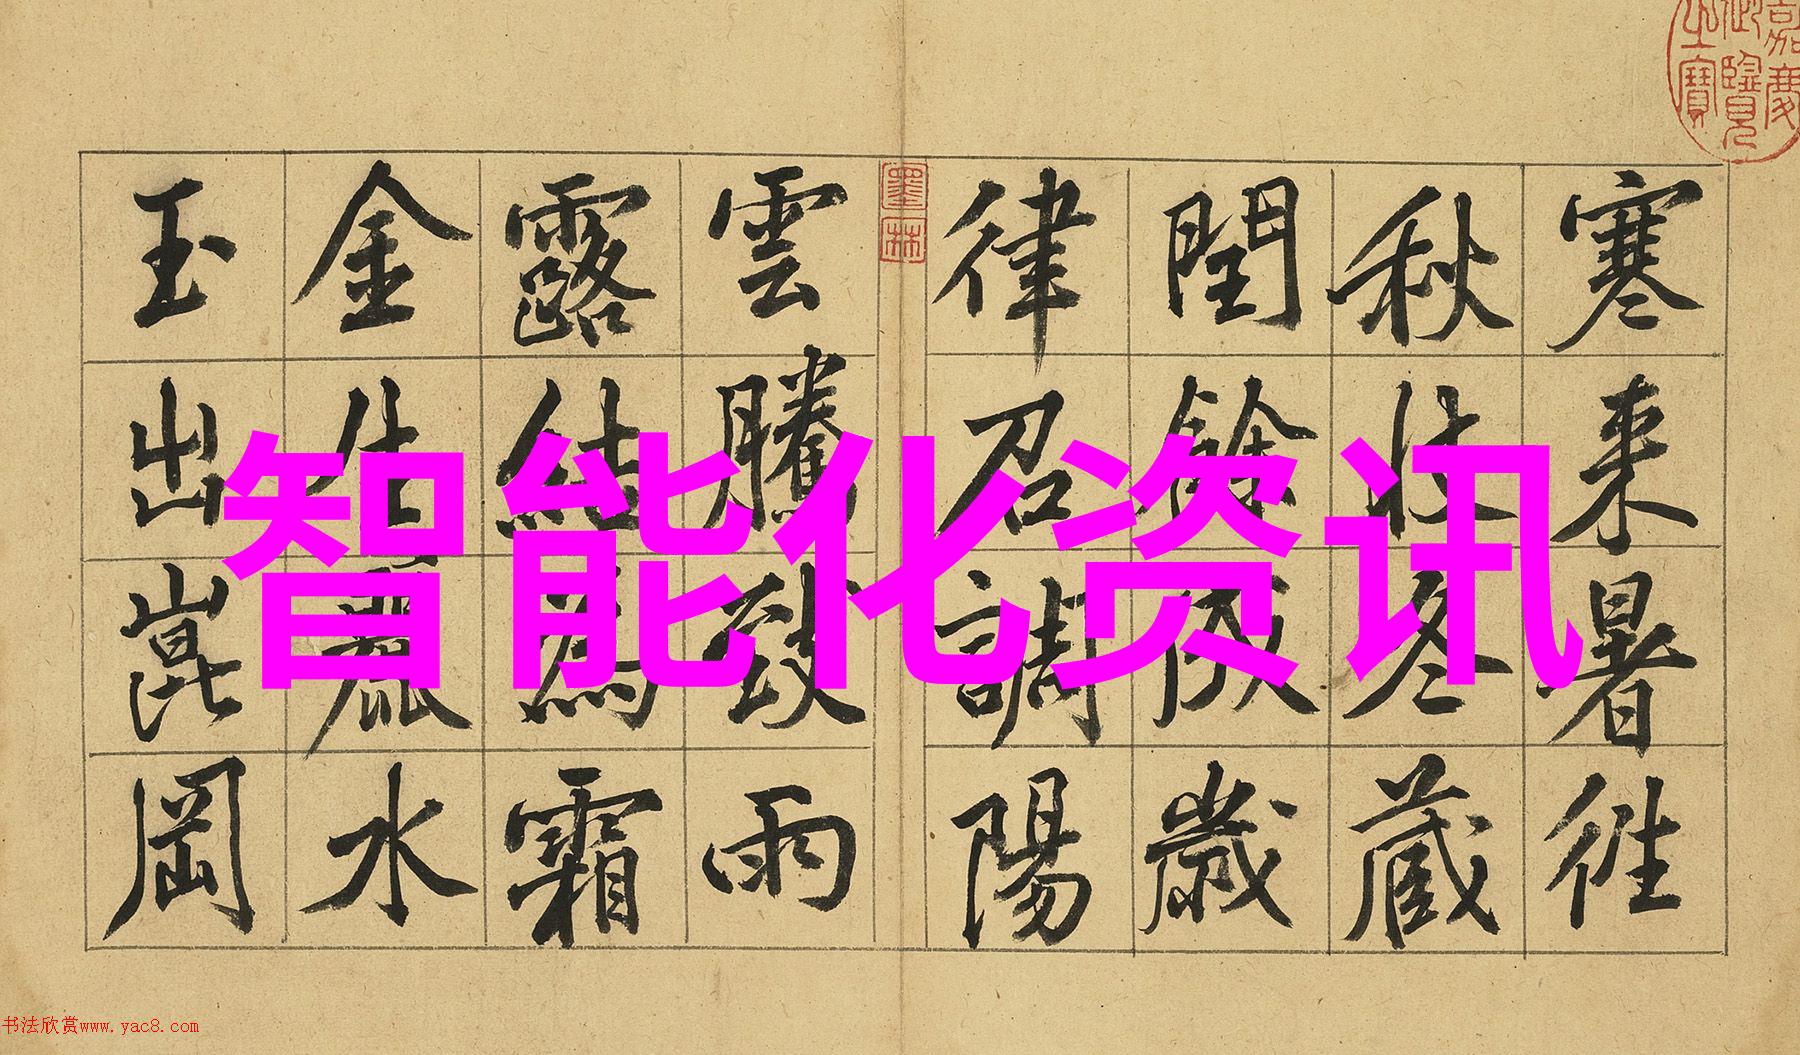 嘉慶
御覽
之寶
寒来暑往
秋收冬蔵
閏餘成歲
律召調陽
墨林
雲騰致雨
露結為霜
金生麗水
玉出崑岡
智能化资讯
书法欣赏www.yac8.com